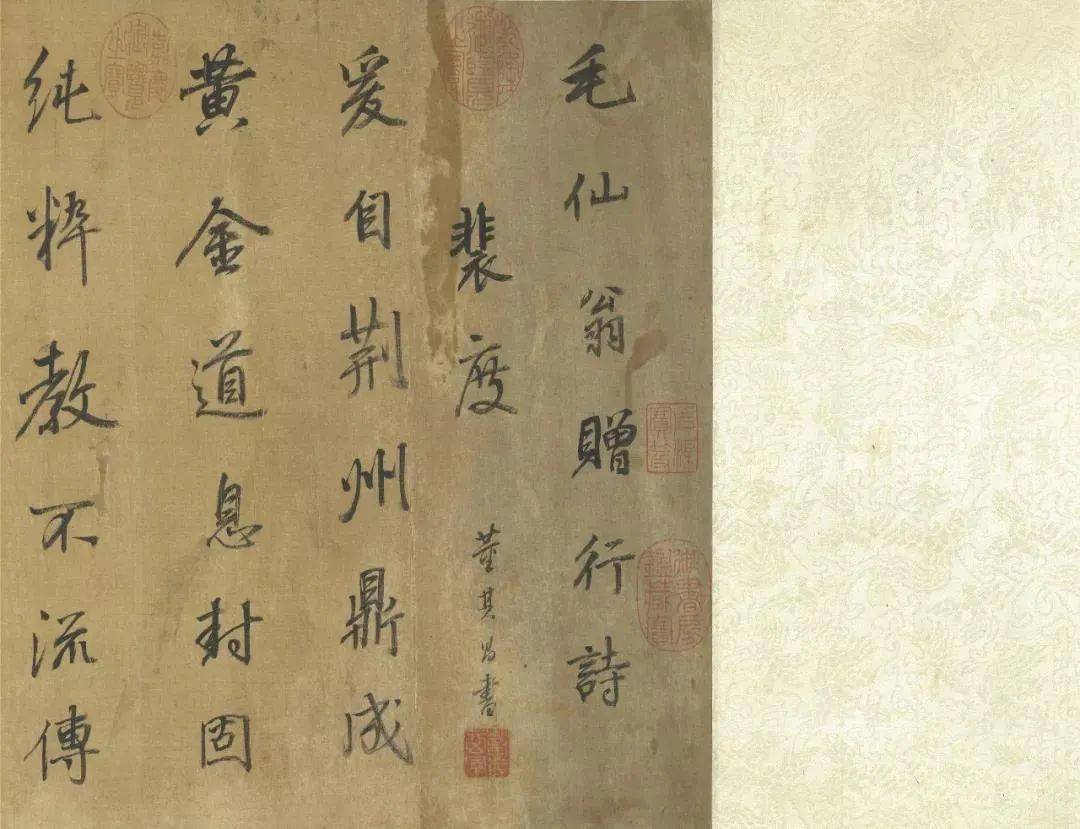 毛仙翁贈行詩
裴度 董其昌書
爰自荆州鼎成
黃金道息封固
純粹教不流傳